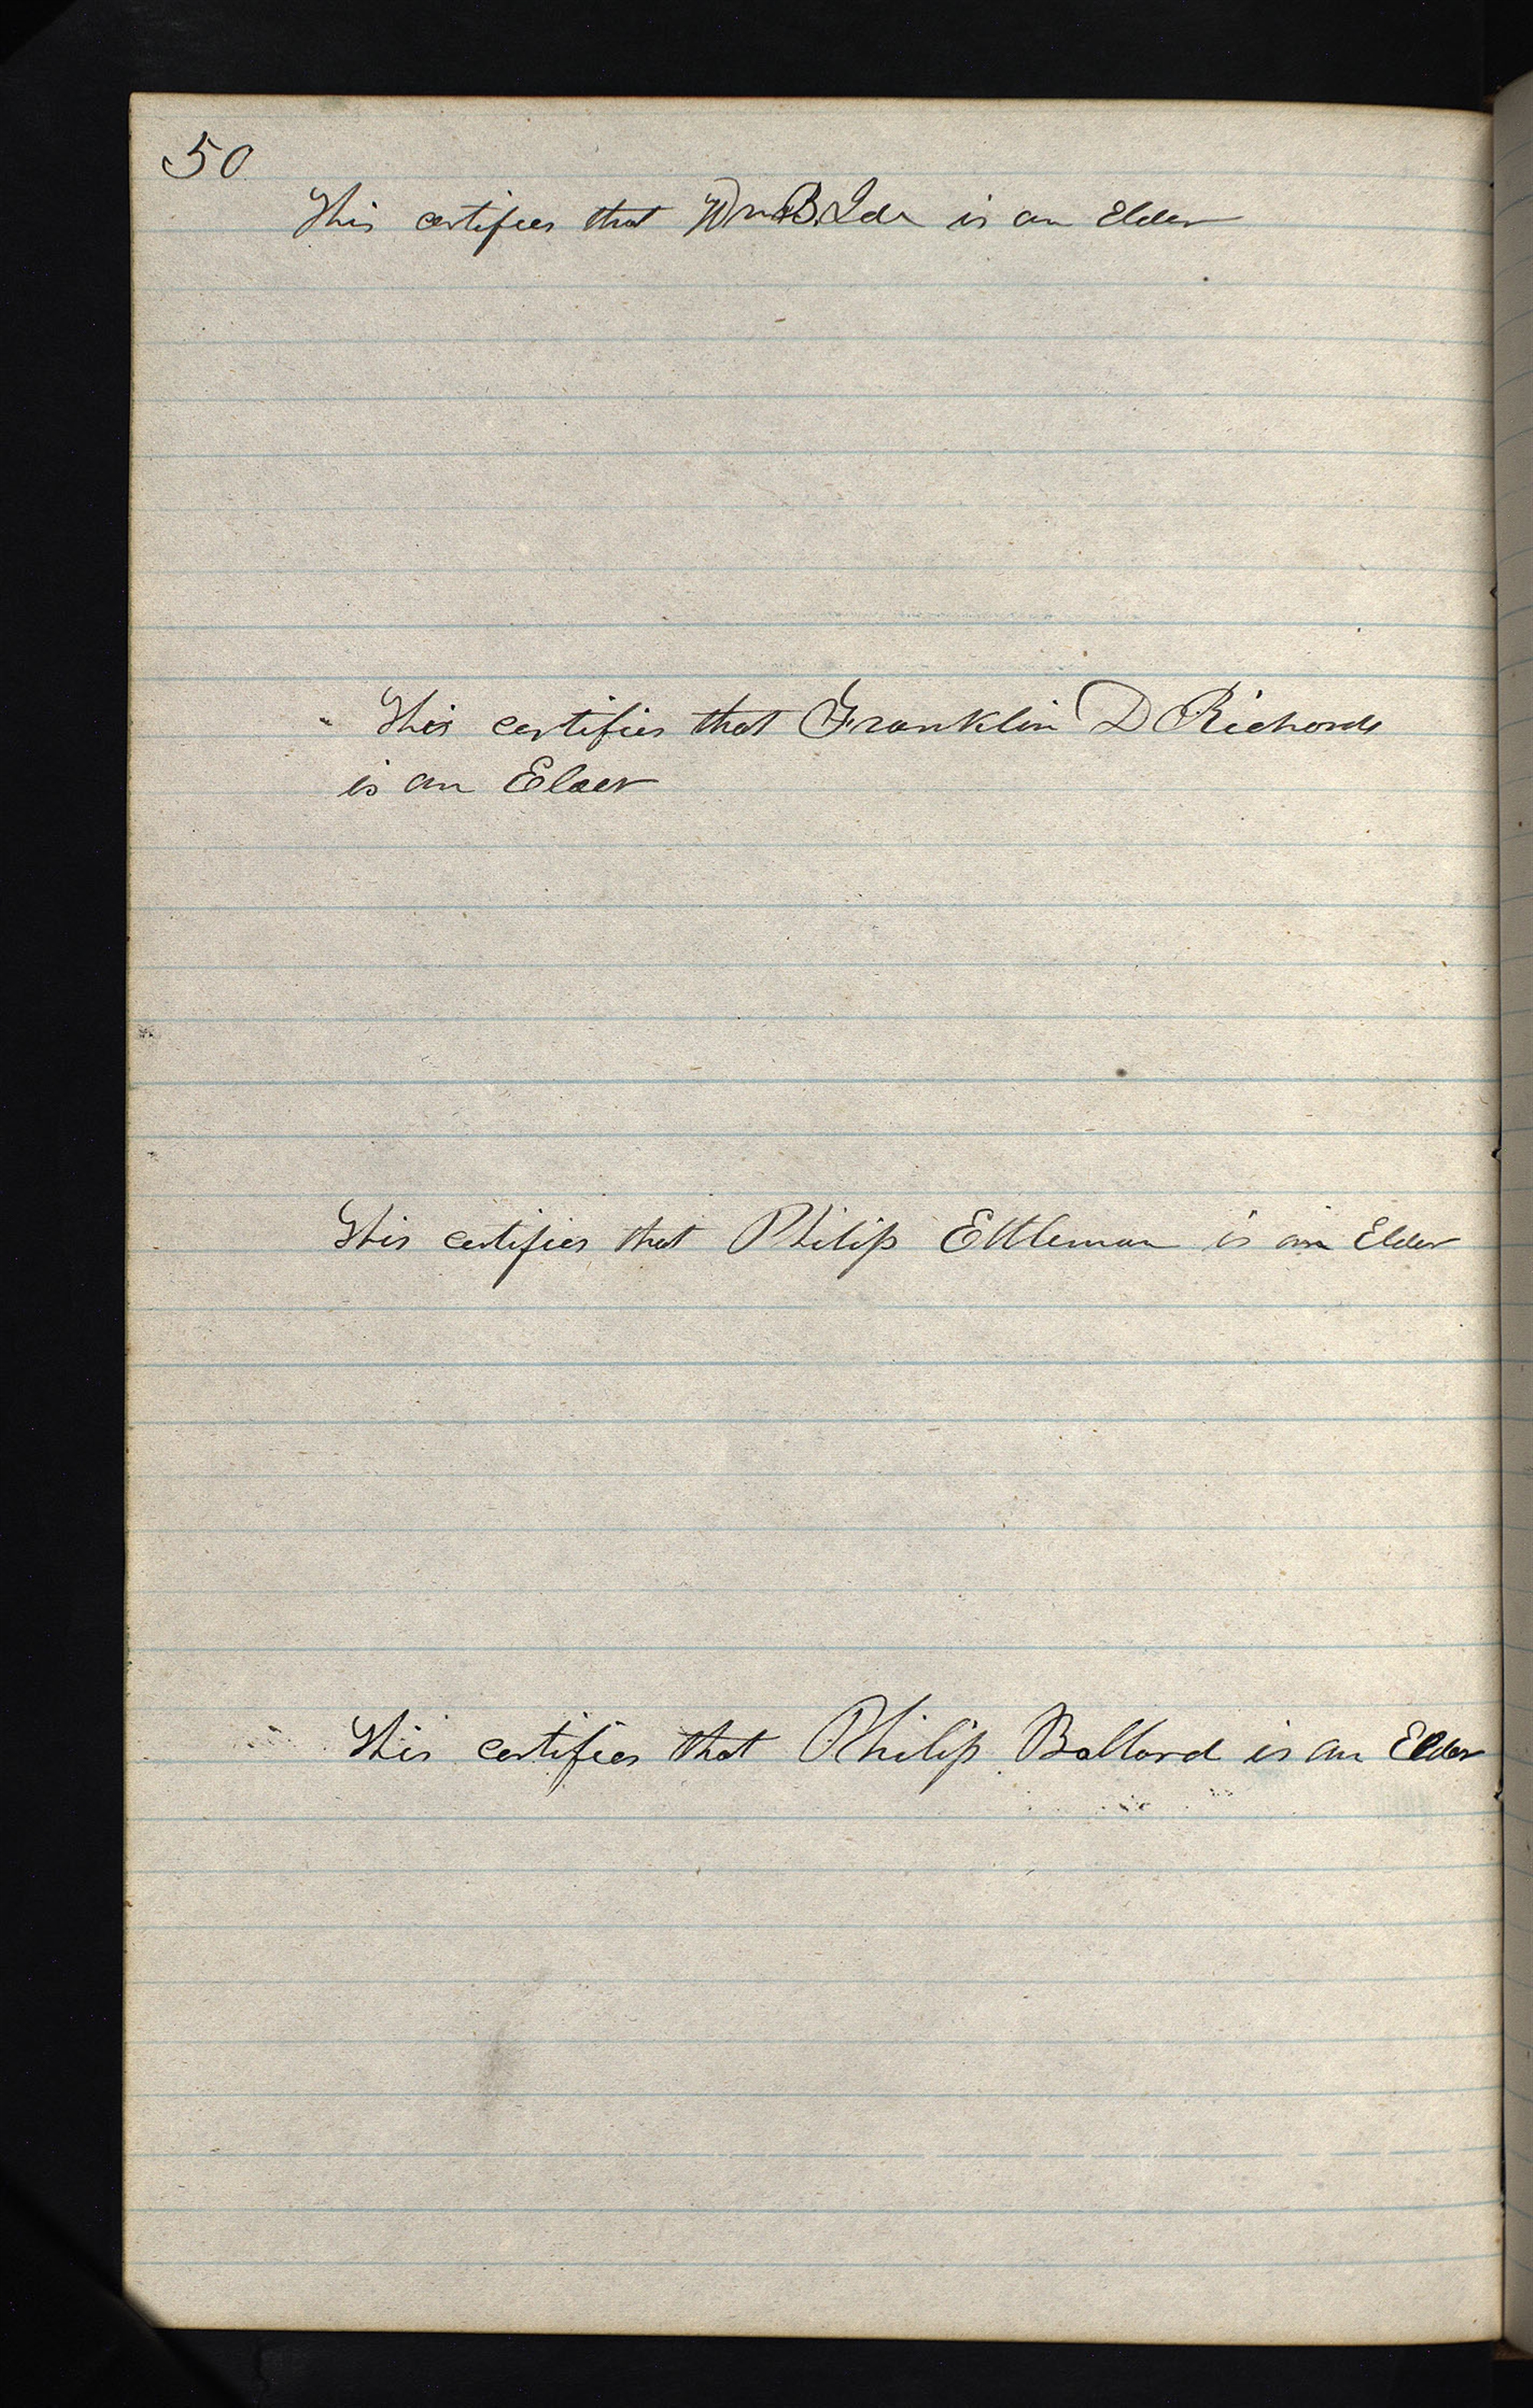 50
This certifies that Wm B. Ide is an Elder
This certifies that Franklin D Richards
is an Elder
This certifies that Philip Ettleman is an Elder
This certifies that Philip Ballard is an Elder